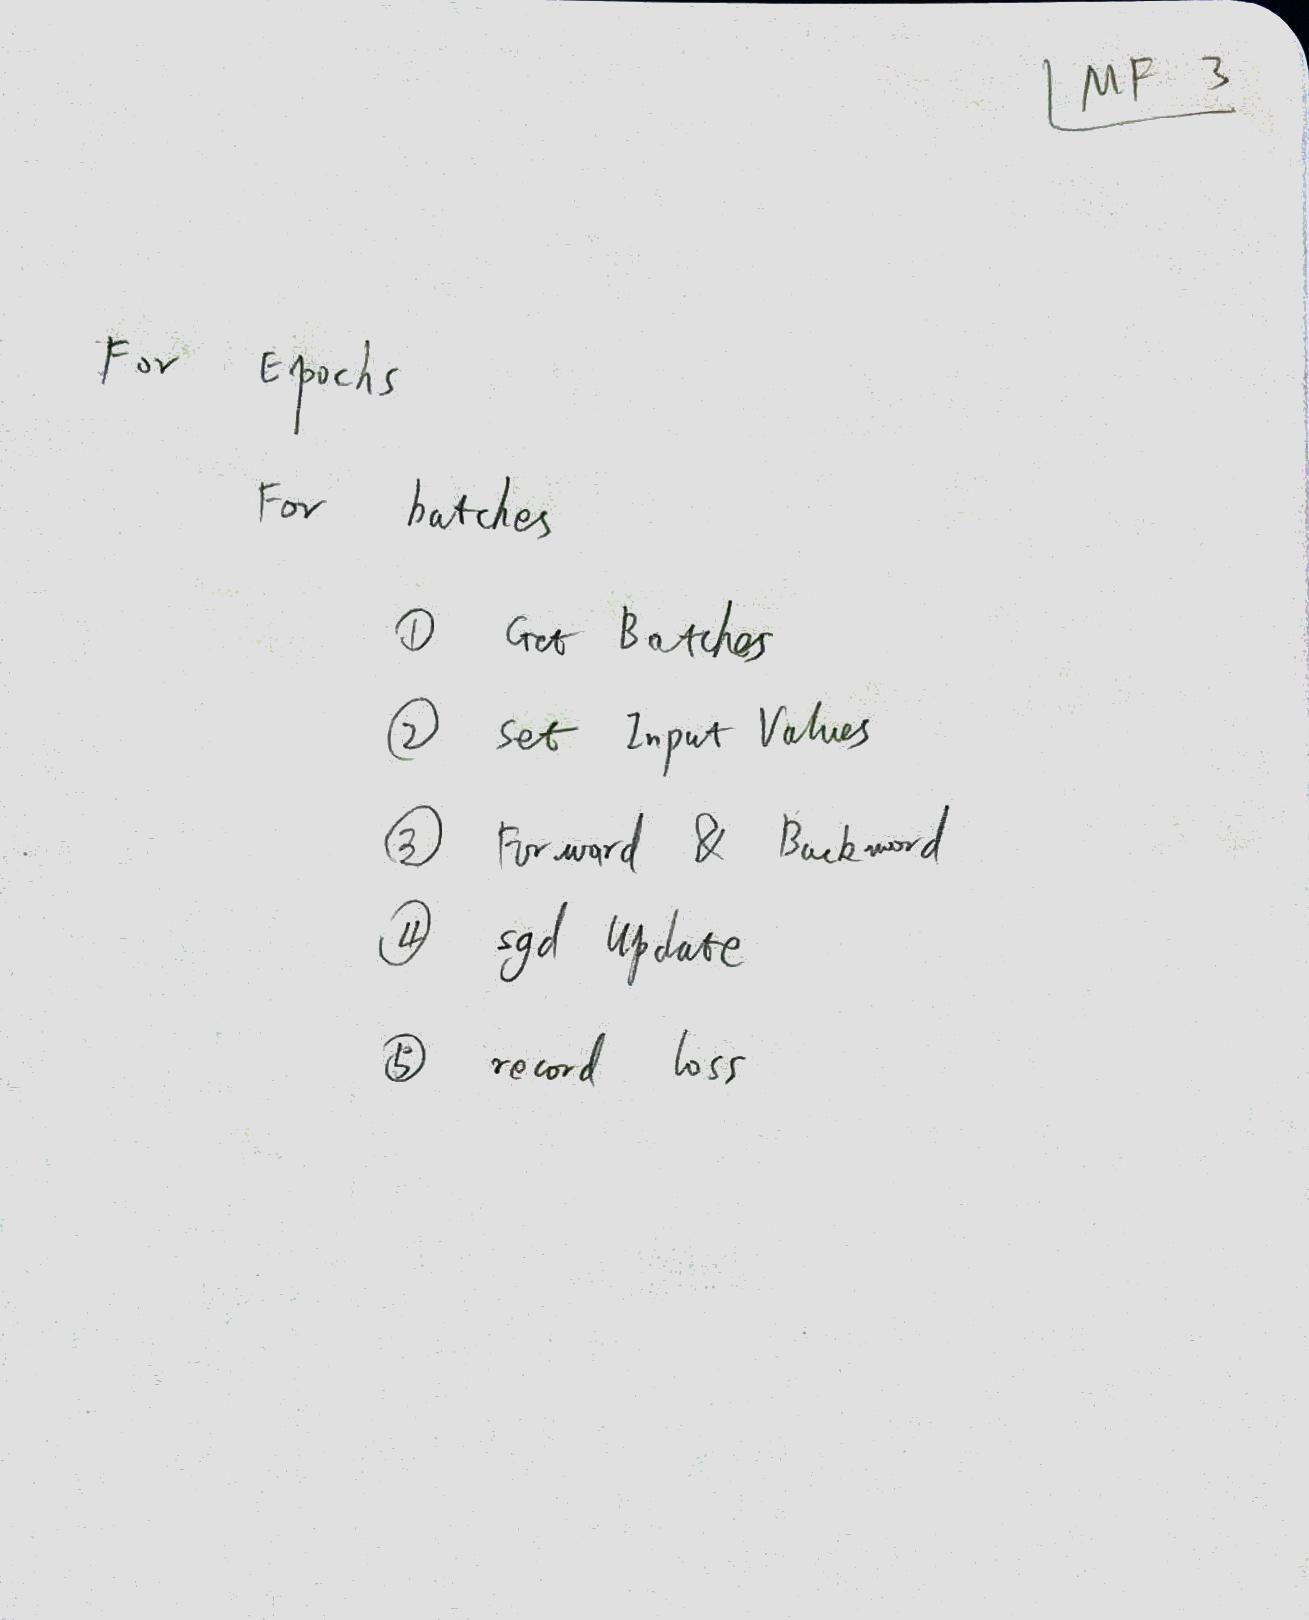 MF 3
For Epochs
For batches
① Get Batches
② Set Input Values
③ Forward & Backward
④ sgd Update
⑤ record loss